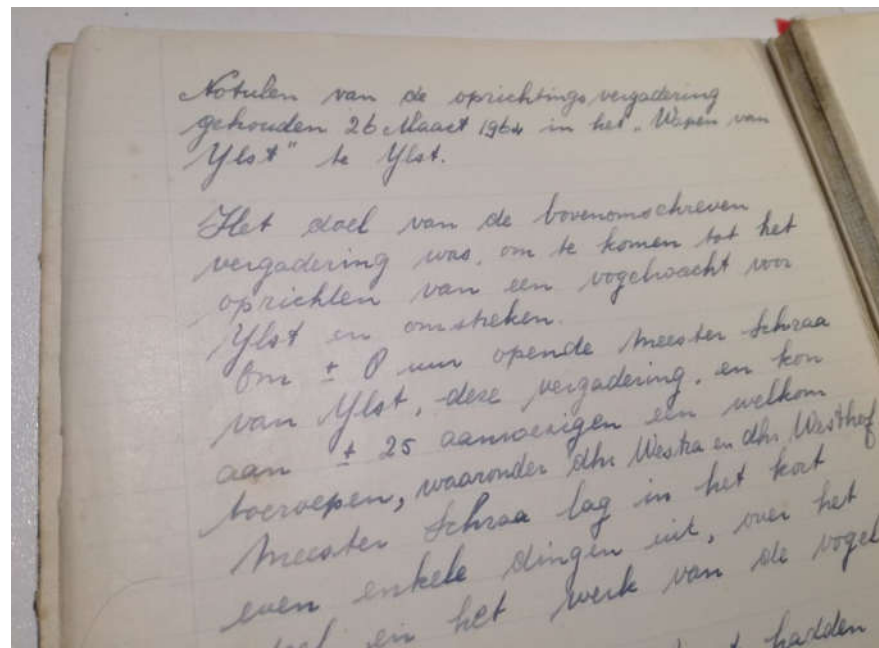 Notulen van de oprichtingsvergadering
gehouden 26 Maart 1964 in het "Wapen van
Ylst" te Ylst.
Het doel van de bovenomschreven
vergadering was, om te komen tot het
oprichten van een vogelwacht voor
Ylst en omstreken.
Om ± 8 uur opende meester Schraa
van Ylst, deze vergadering, en kon
aan ± 25 aanwezigen een welkom
toeroepen, waaronder dhr Westra en dhr Westhof
Meester Schraa lag in het kort
even enkele dingen uit, over het
en het werk van de vogel
hadden